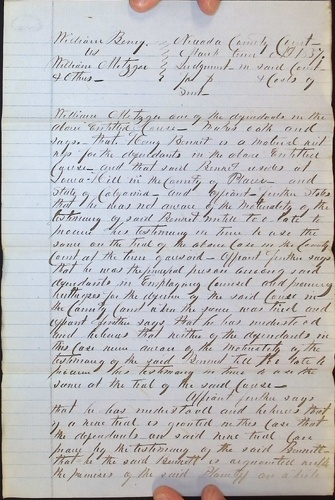 William Berry Nevada County Court
vs March Term A.D. 1857
William Metzger Judgment in said Court
& Others & Costs of
Suit
William Metzger one of the defendants in the
above Entitled Cause Makes oath and
says that Henry Bennett is a material wit
ness for the defendants in the above Entitled
Cause and that said Bennett resides at
Iowa Hill in the County of Placer and
State of California and Affiant further states
that he was not aware of the materiality of the
testimony of said Bennett until too late to
procure his testimony in time to use the
same on the trial of the above Case in the County
Court at the term aforesaid Affiant further says
that he was the principal person among said
defendants in Employing Counsel and procuring
witnesses for the defence of the said Cause in
the County Court when the same was tried and
affiant further says that he has understood
and believes that neither of the defendants in
this Case were aware of the materiality of the
testimony of the said Bennett till too late to
procure his testimony in time to use the
same at the trial of the said Cause
Affiant further says
that he has understood and believes that
if a new trial is granted in this case that
the defendants on said new trial can
prove by the testimony of the said Bennett
that he the said Bennett is acquainted with
the premises of the said Plaintiff on a